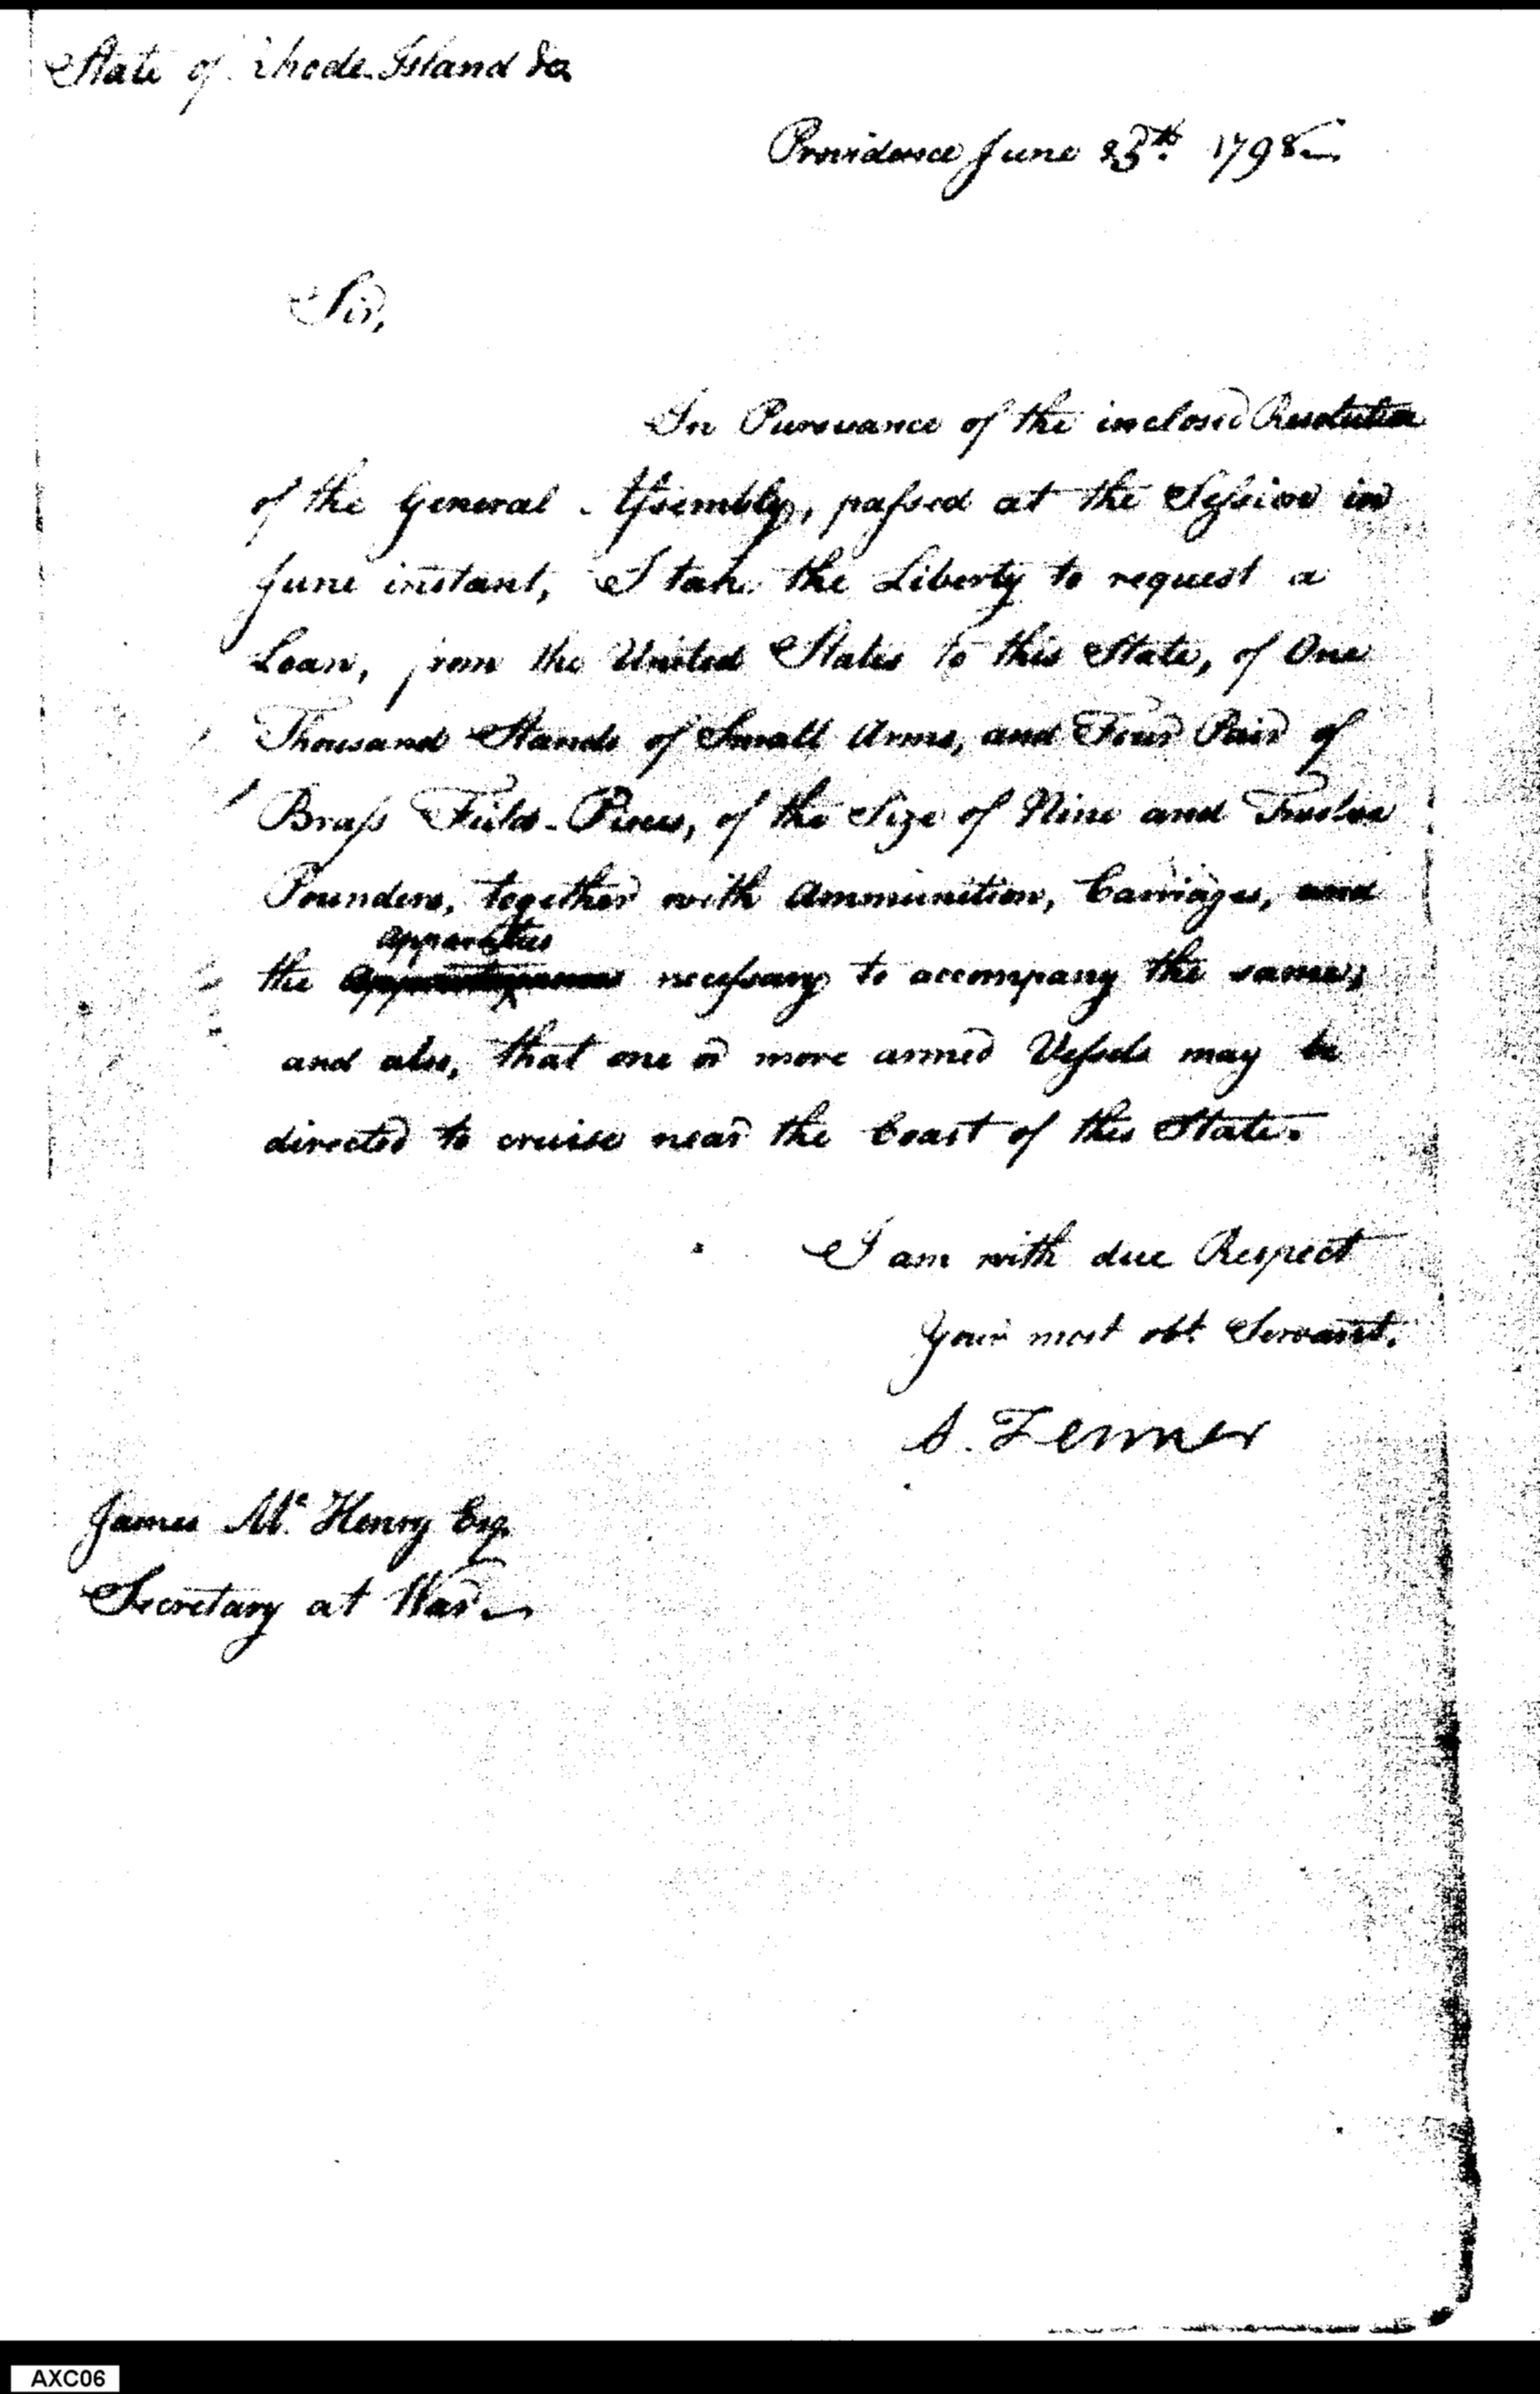 State of Rhode Island &c
Providence June 25th. 1798
Sir,
In Pursuance of the inclosed Resolution
of the General Assembly, passed at the Session in
June instant, I take the Liberty to request a
Loan, from the United States to this State, of One
Thousand Stands of Small Arms, and Four Pair of
Brass Field-Pieces, of the Size of Nine and Twelve
Pounders, together with Ammunition, Carriages, and
apparatus
the necessary to accompany the same;
and also, that one or more armed Vessels may be
directed to cruise near the Coast of this State.
I am with due Respect
Your most obt. Servant.
A. Fenner
James Mc. Henry Esq.
Secretary at War
AXC06